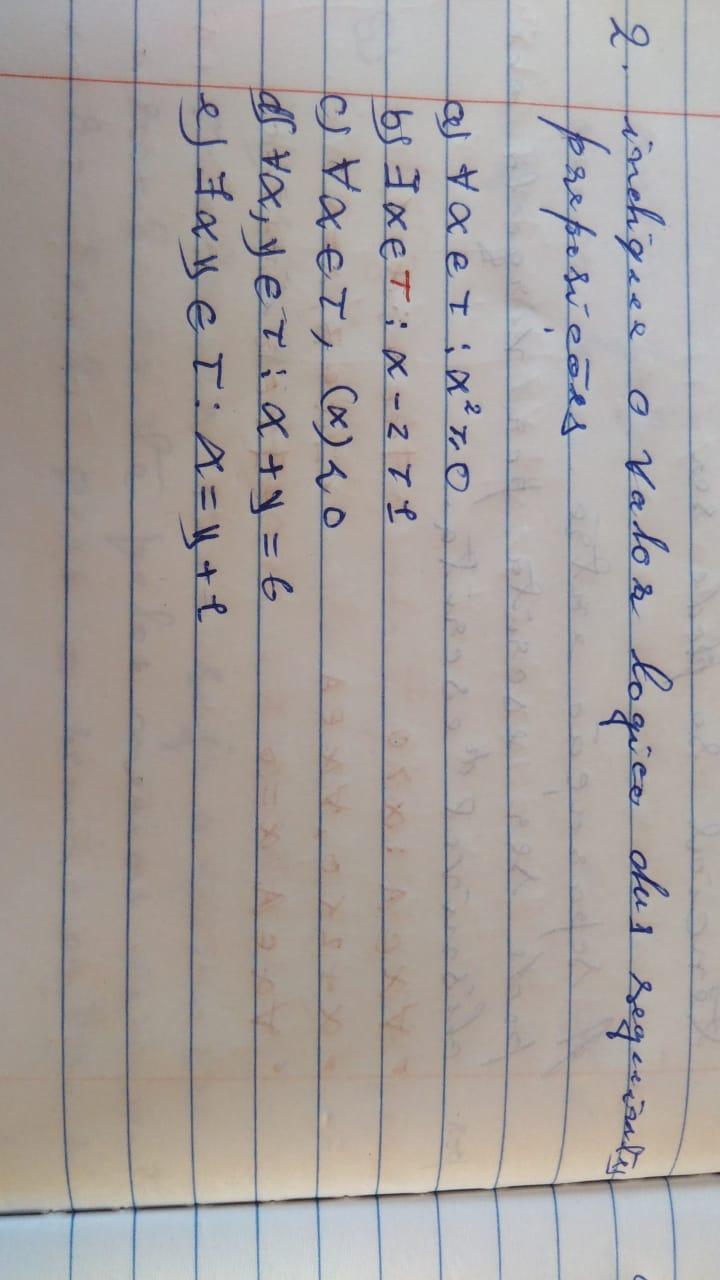 2. indique o valor logico das seguintes
proposições
a) ∀x ∈ T : x² ≥ 0
b) ∃x ∈ T : x - 2 > 1
c) ∀x ∈ T, (x) < 0
d) ∀x, y ∈ T : x + y = 6
e) ∃x y ∈ T : x = y + 1